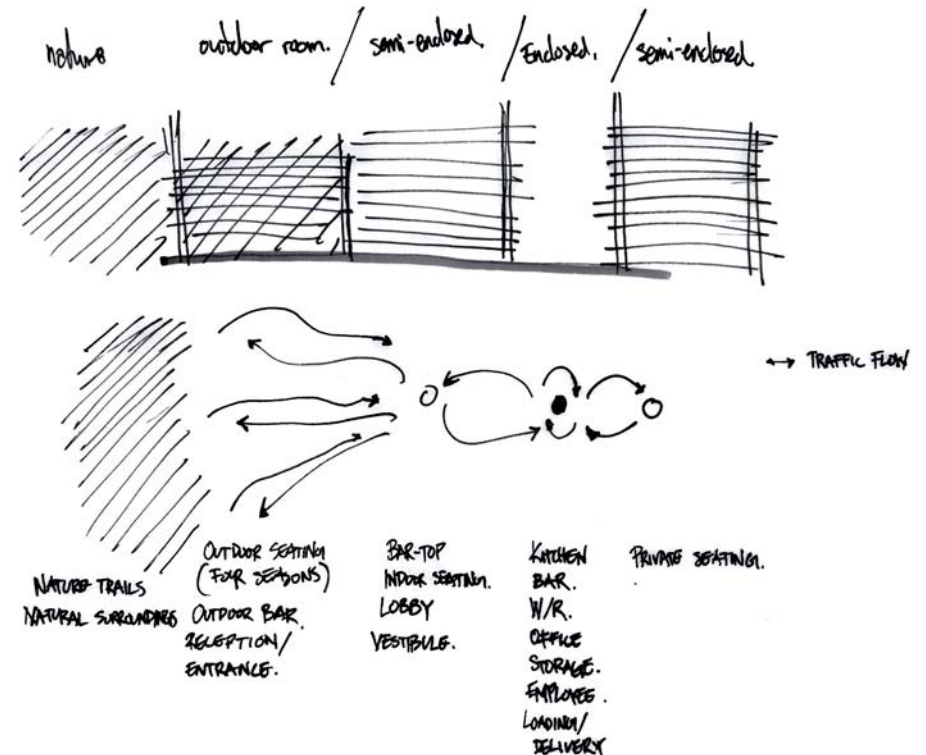 nature
outdoor room. / semi-enclosed. / Enclosed. / semi-enclosed.
↔ TRAFFIC FLOW
NATURE TRAILS
NATURAL SURROUNDINGS
OUTDOOR SEATING
(FOUR SEASONS)
OUTDOOR BAR.
RECEPTION/
ENTRANCE.
BAR-TOP
INDOOR SEATING.
LOBBY
VESTIBULE.
KITCHEN
BAR.
W/R.
OFFICE
STORAGE.
EMPLOYEE.
LOADING/
DELIVERY
PRIVATE SEATING.